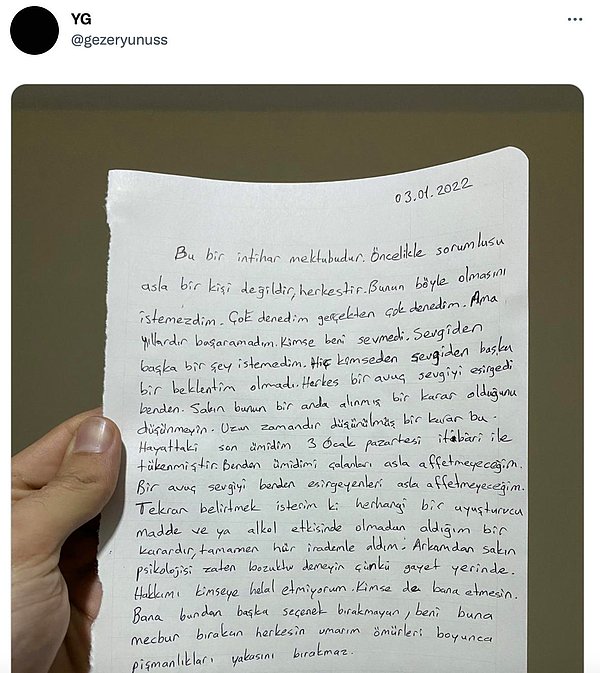 YG
@gezeryunuss
03.01.2022
Bu bir intihar mektubudur. Öncelikle sorumlusu
asla bir kişi değildir, herkestir. Bunun böyle olmasını
istemezdim. Çok denedim gerçekten çok denedim. Ama
yıllardır başaramadım. Kimse beni sevmedi. Sevgiden
başka bir şey istemedim. Hiç kimseden sevgiden başka
bir beklentim olmadı. Herkes bir avuç sevgiyi esirgedi
benden. Sakın bunun bir anda alınmış bir karar olduğunu
düşünmeyin. Uzun zamandır düşünülmüş bir karar bu.
Hayattaki son ümidim 3 Ocak pazartesi itibari ile
tükenmiştir. Benden ümidimi çalanları asla affetmeyeceğim.
Bir avuç sevgiyi benden esirgeyenleri asla affetmeyeceğim.
Tekrar belirtmek isterim ki herhangi bir uyuşturucu
madde ve ya alkol etkisinde olmadan aldığım bir
karardır, tamamen hür irademle aldım. Arkamdan sakın
psikolojisi zaten bozuktu demeyin çünkü gayet yerinde.
Hakkımı kimseye helal etmiyorum. Kimse de bana etmesin.
Bana bundan başka seçenek bırakmayan, beni buna
mecbur bırakan herkesin umarım ömürleri boyunca
pişmanlıkları yakasını bırakmaz.